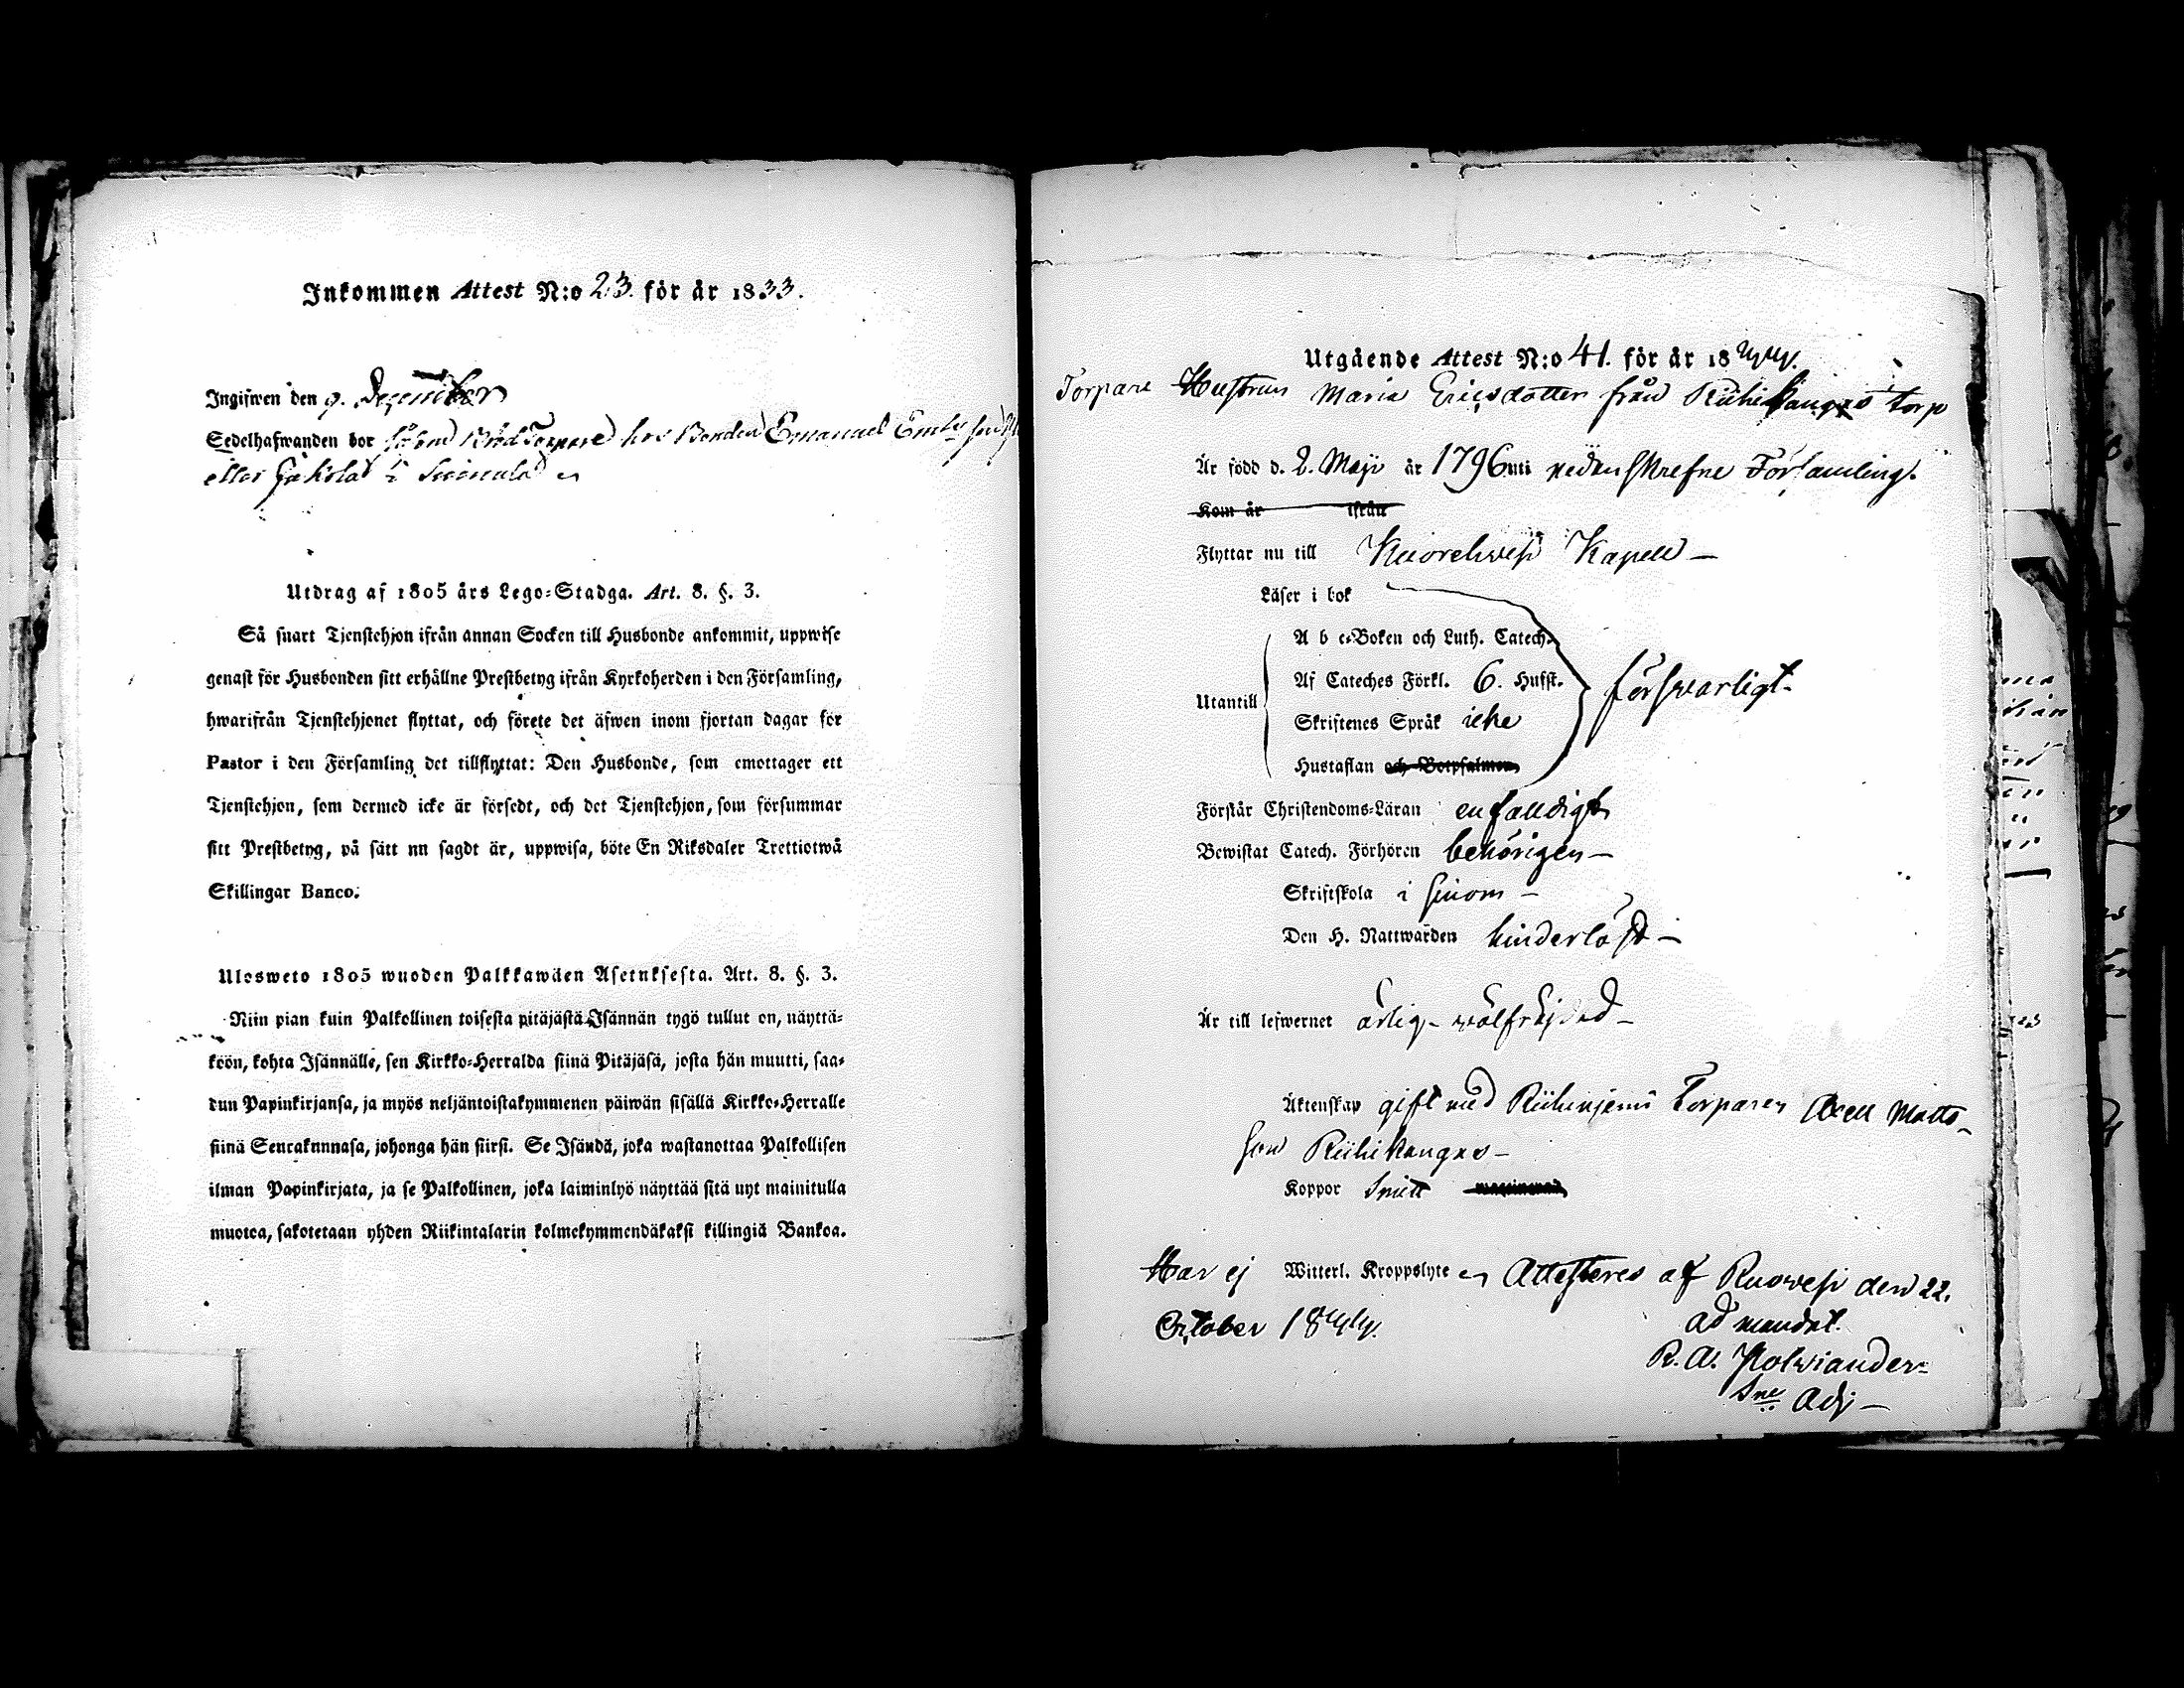 Inkommen Attest N:o 23. för år 1833.
Ingifwen den 9. December
Sedelhafwanden bor såsom Torpare hos Bonden Emanuel
eller Jakola i
Utdrag af 1805 års Lego-Stadga. Art. 8. §. 3.
Så snart Tjenstehjon ifrån annan Socken till Husbonde ankommit, uppwise
genast för Husbonden sitt erhållne Prestbetyg ifrån Kyrkoherden i den Församling,
hwarifrån Tjenstehjonet flyttat, och förete det äfwen inom fjortan dagar för
Pastor i den Församling det tillflyttat: Den Husbonde, som emottager ett
Tjenstehjon, som dermed icke är försedt, och det Tjenstehjon, som försummar
sitt Prestbetyg, på sätt nu sagdt är, uppwisa, böte En Riksdaler Trettiotwå
Skillingar Banco.
Ulosweto 1805 wuoden Palkkawäen Asetuksesta. Art. 8. §. 3.
Niin pian kuin Palkollinen toisesta pitäjästä Isännän tygö tullut on, näyttä-
köön, kohta Isännälle, sen Kirkko-Herralda siinä Pitäjäsä, josta hän muutti, saa-
dun Papinkirjansa, ja myös neljäntoistakymmenen päiwän sisällä Kirkko-Herralle
siinä Seurakunnasa, johonga hän siirsi. Se Isändä, joka wastanottaa Palkollisen
ilman Papinkirjata, ja se Palkollinen, joka laiminlyö näyttää sitä nyt mainitulla
muotoa, sakotetaan yhden Riikintalarin kolmekymmendäkaksi killingiä Bankoa.
Utgående Attest N:o 41. för år 1844.
Torpare Hustrun Maria Ericsdotter från Riihikangas torp
Är född d. 2. Maji år 1796 uti nedanskrefne Församling.
Kom år ifrån
Flyttar nu till Kuorehwesi Kapell –
Läser i bok
Utantill
A b c-Boken och Luth. Catech.
Af Cateches Förkl. 6. Hufst.
Skriftenes Språk icke
Hustaflan och Botpsalmen
försvarligt.
Förstår Christendoms-Läran enfalldigt
Bewistat Catech. Förhören behörigen –
Skriftskola i sinom –
Den H. Nattwarden hinderlöst –
Är till lefwernet ärlig – wälfräjdad –
Äktenskap gift med Torparen Axell Matts-
son Riihikangas –
Koppor Smitt
Har ej Witterl. Kroppslyte Attesteres af Ruowesi den 22.
October 1844.
ad mandat.
R. A. Holwiander
Sne Adj –